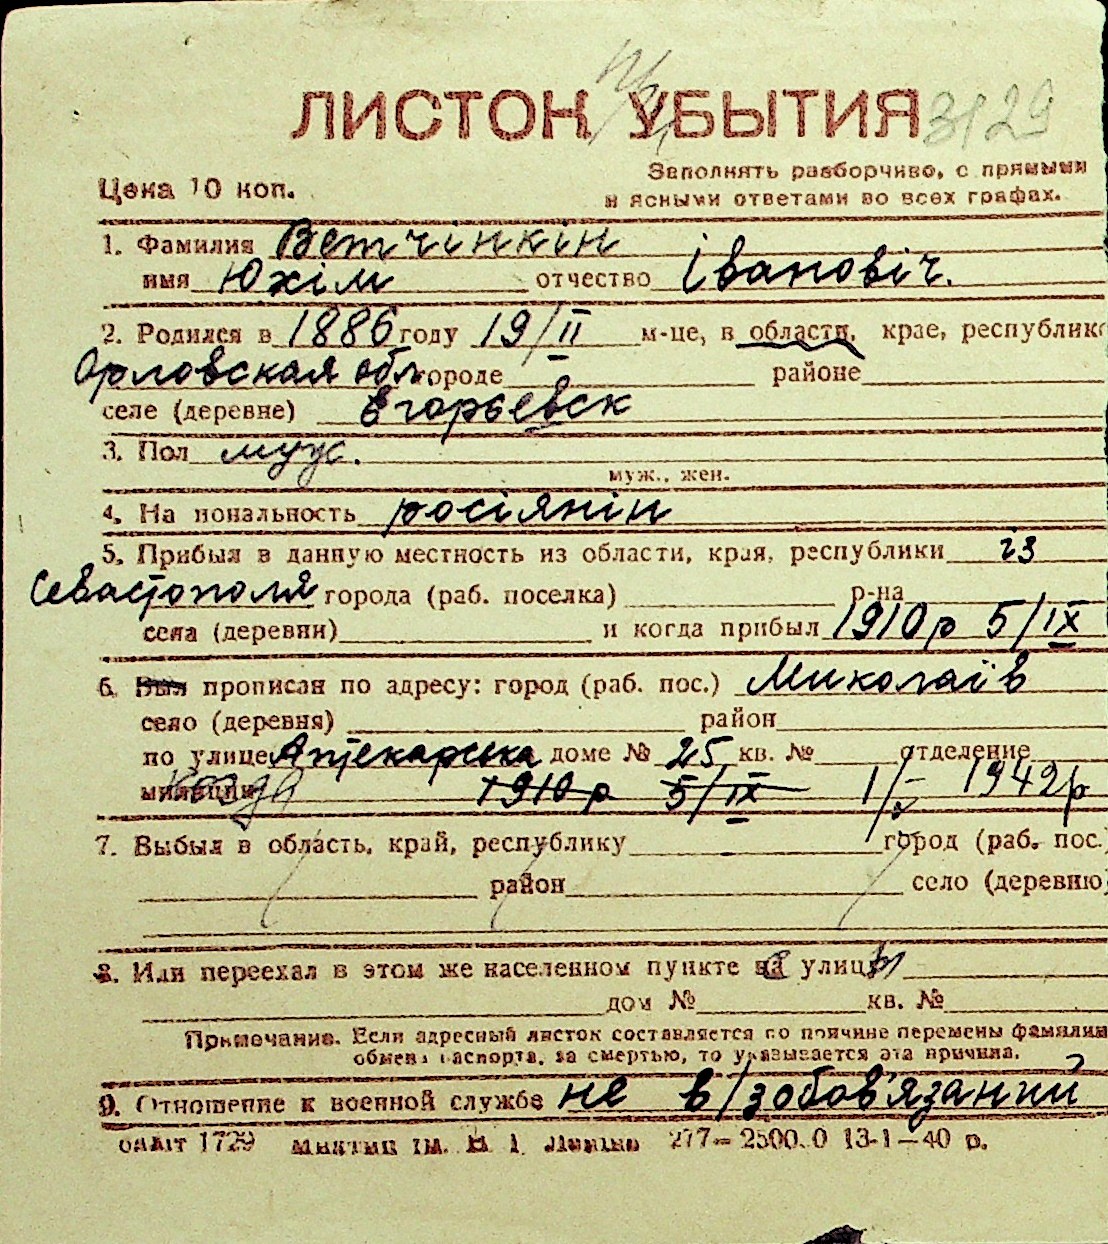 ЛИСТОК УБЫТИЯ 3129
Цена 10 коп.
Заполнять разборчиво, с прямыми
и ясными ответами во всех графах.
1. Фамилия Ветчінкін
имя Юхім отчество Іванович.
2. Родился в 1886 году 19/II м-це, в области, крае, республике
Орловская обл городе районе
селе (деревне) Егорьевск
3. Пол муж.
муж., жен.
4. На иональность росіянін
5. Прибыл в данную местность из области, края, республики із
Севастополя города (раб. поселка) р-на
села (деревни) и когда прибыл 1910 р 5/IX
6. Был прописан по адресу: город (раб. пос.) Миколаїв
село (деревня) район
по улице Аптекарська доме № 25 кв. № отделение
милиции когда 1910 р 5/IX 1/ 1942 р
7. Выбыл в область, край, республику город (раб. пос.)
район село (деревню)
8. Или переехал в этом же населенном пункте на улицы
дом № кв. №
Примечание. Если адресный листок составляется по причине перемены фамилии
обмена паспорта, за смертью, то указывается эта причина.
9. Отношение к военной службе не в/зобов'язаний
обліт 1729 277— 2500.0 13-1—40 р.